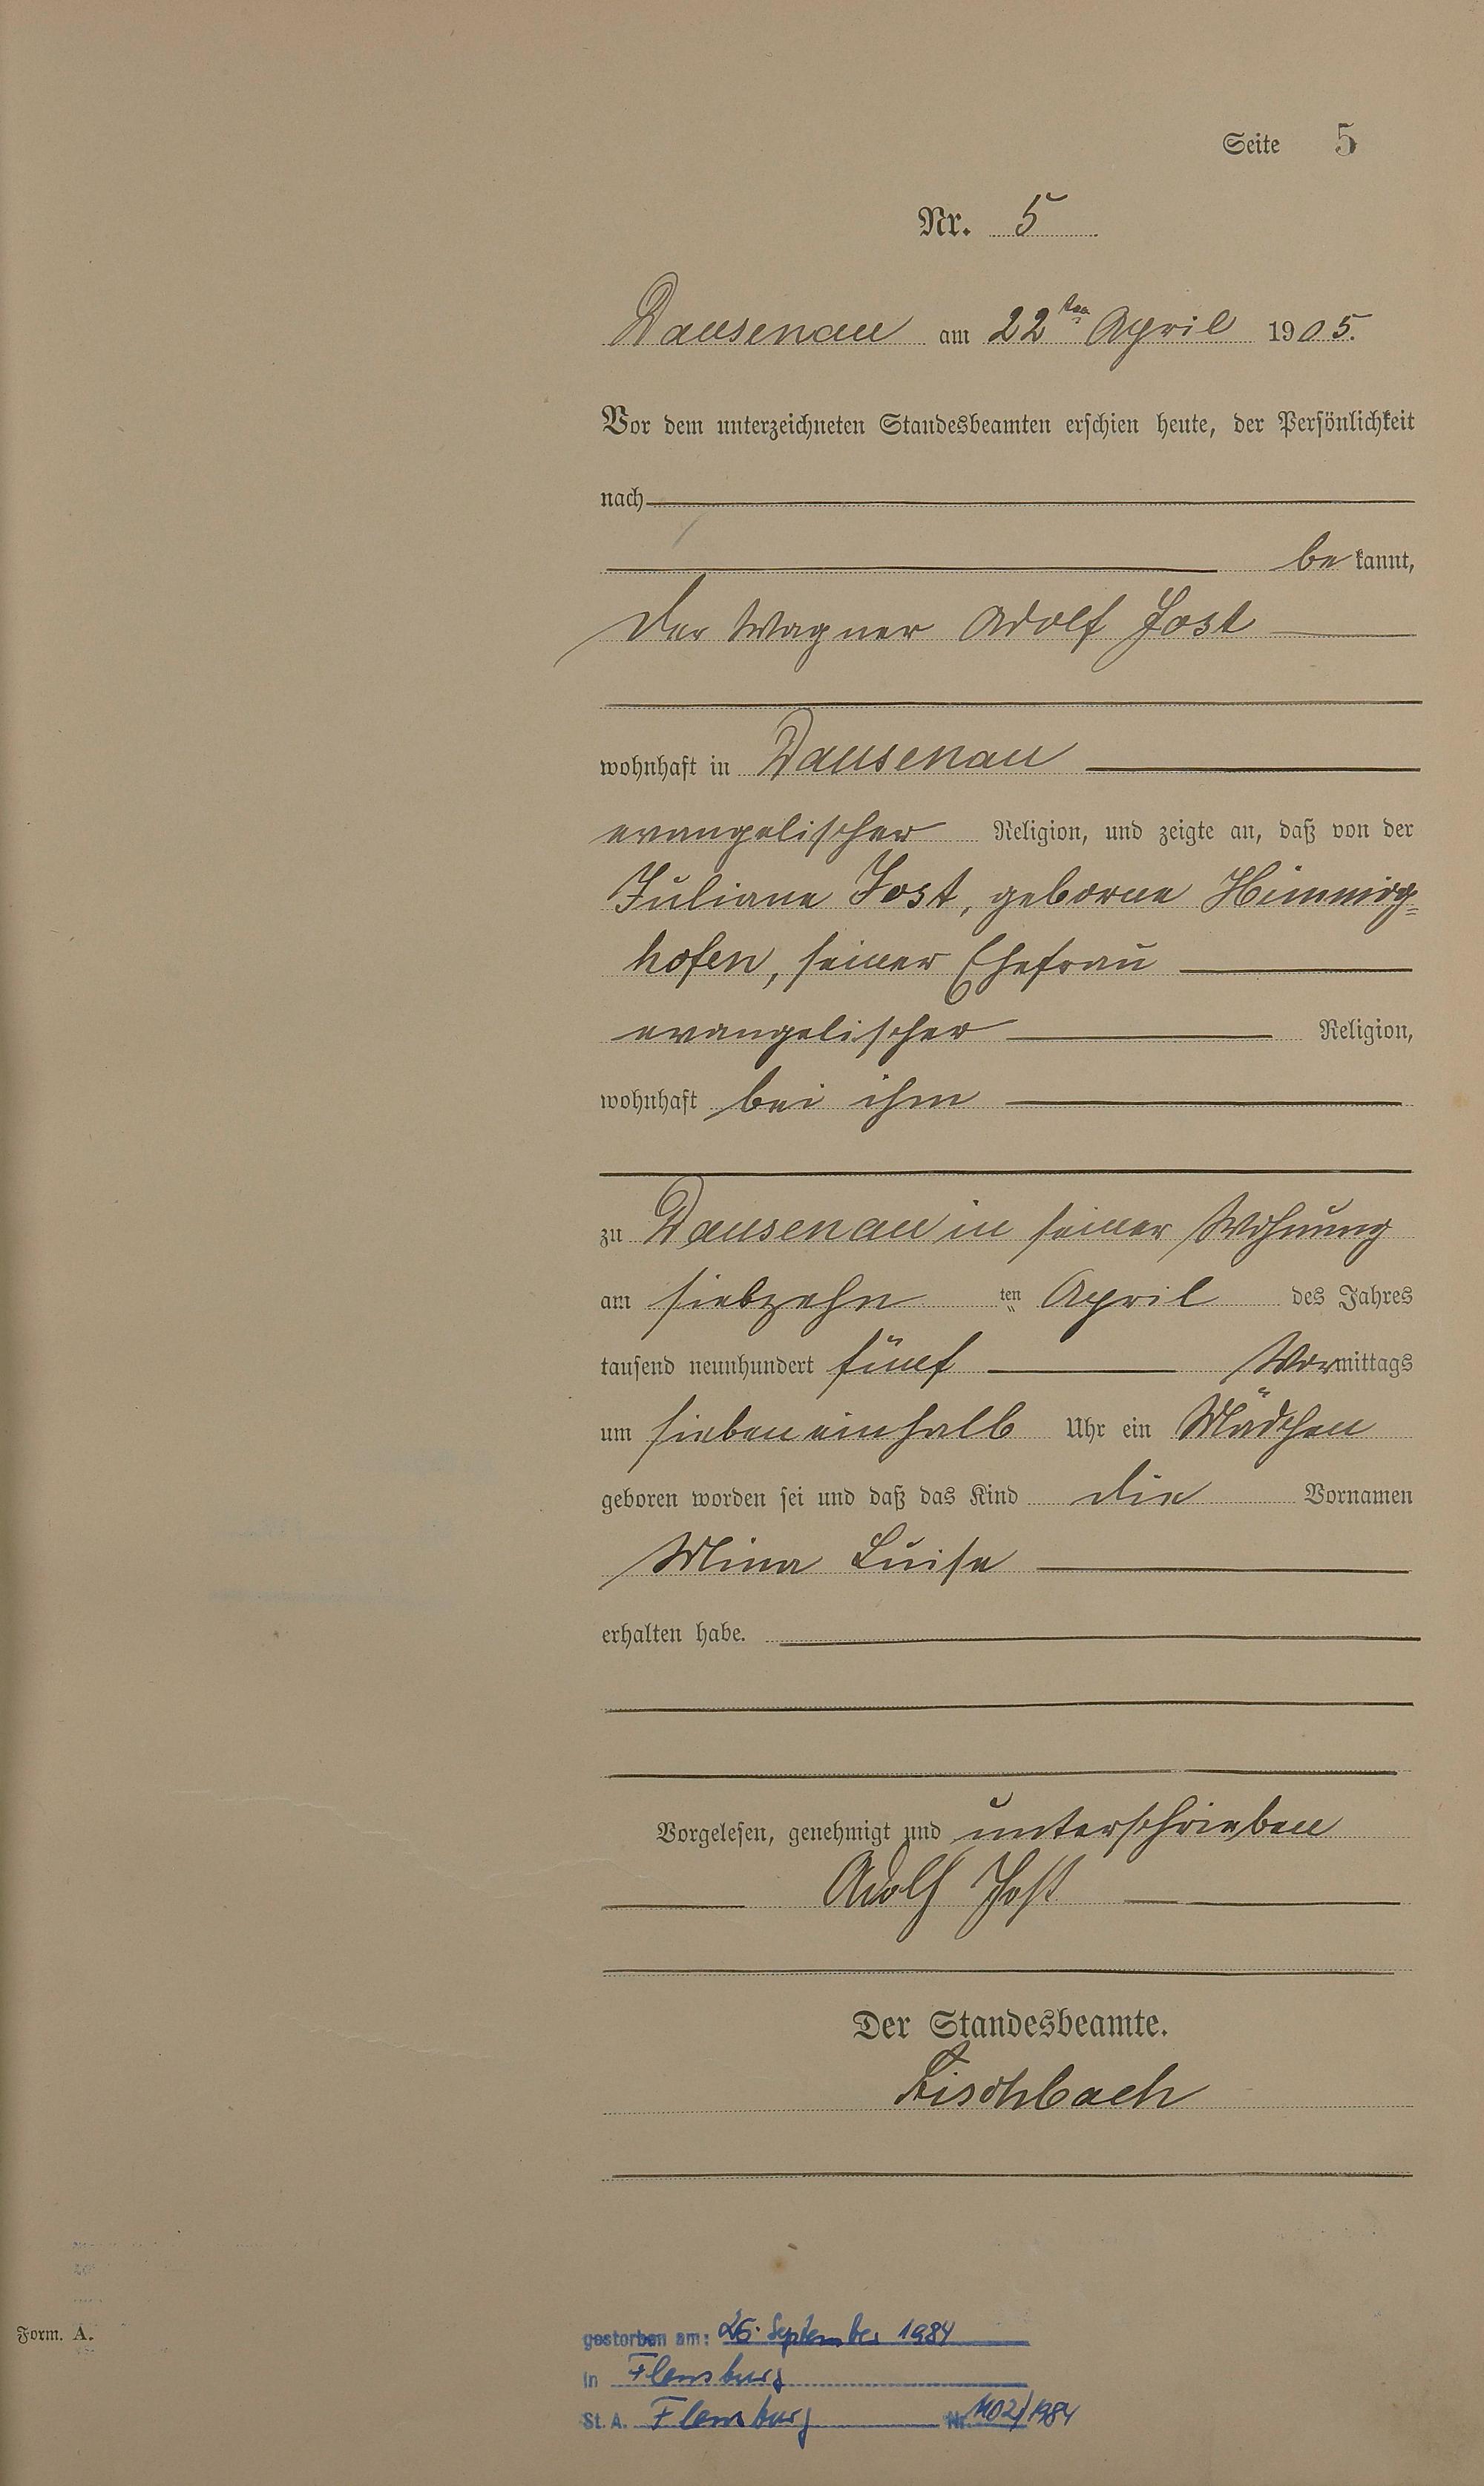 Seite 5
Nr. 5
Dausenau am 22ten April 1905.
Vor dem unterzeichneten Standesbeamten erschien heute, der Persönlichkeit
nach
bekannt,
der Wagner Adolf Jost
wohnhaft in Dausenau
evangelischer Religion, und zeigte an, daß von der
Juliane Jost, geborne Himmig=
hofen, seiner Ehefrau
evangelischer Religion,
wohnhaft bei ihm
zu Dausenau in seiner Wohnung
am siebzehn ten April des Jahres
tausend neunhundert fünf Vormittags
um sieben einhalb Uhr ein Mädchen
geboren worden sei und daß das Kind die Vornamen
Mina Luise
erhalten habe.
Vorgelesen, genehmigt und unterschrieben
Adolf Jost
Der Standesbeamte.
Fischbach
Form. A.
gestorben am: 26. September 1984
in Flensburg
St. A. Flensburg Nr. 1102/1984